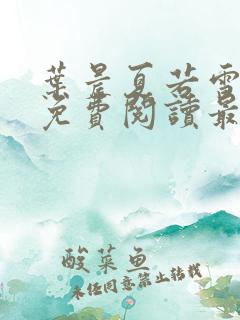 葉晨夏若雪
免費閱讀最
酸菜魚
未经同意禁止转载